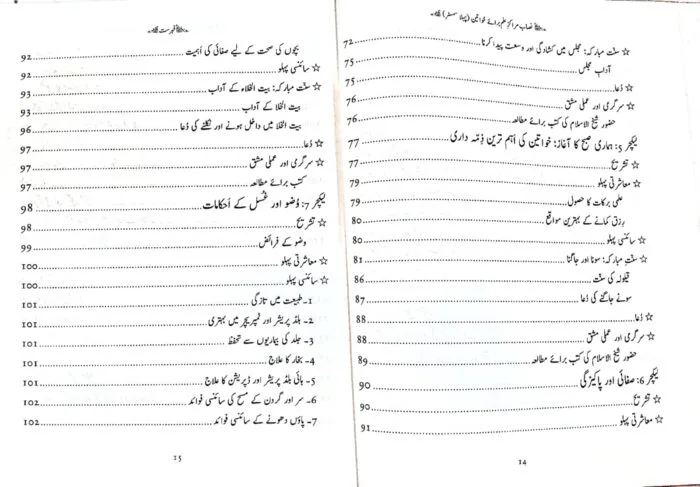 نصاب مراکزِ علم برائے خواتین (پہلا سمسٹر)
☆ سنّتِ مبارکہ: مجلس میں کشادگی اور وسعت پیدا کرنا ............ 72
آدابِ مجلس ............ 75
☆ دُعا ............ 75
☆ سرگرمی اور عملی مشق ............ 76
حضور شیخ الاسلام کی کتب برائے مطالعہ ............ 76
لیکچر 5: ہماری صبح کا آغاز: خواتین کی اَہم ترین ذِمّہ داری ............ 77
☆ تشریح ............ 77
☆ معاشرتی پہلو ............ 79
علمی برکات کا حصول ............ 79
رِزق کمانے کے بہترین مواقع ............ 80
☆ سائنسی پہلو ............ 80
☆ سنّتِ مبارکہ: سونا اور جاگنا ............ 81
قیلولہ کی سنّت ............ 86
سونے جاگنے کی دُعا ............ 87
☆ دُعا ............ 88
☆ سرگرمی اور عملی مشق ............ 88
حضور شیخ الاسلام کی کتب برائے مطالعہ ............ 89
لیکچر 6: صفائی اور پاکیزگی ............ 90
☆ تشریح ............ 90
☆ معاشرتی پہلو ............ 91
14
فہرست
بچوں کی صحت کے لیے صفائی کی اَہمیت ............ 92
☆ سائنسی پہلو ............ 92
☆ سنّت مبارکہ: بیت الخلاء کے آداب ............ 93
بیت الخلا کے آداب ............ 93
بیت الخلا میں داخل ہونے اور نکلنے کی دُعا ............ 96
☆ دُعا ............ 97
☆ سرگرمی اور عملی مشق ............ 97
کتب برائے مطالعہ ............ 97
لیکچر 7: وُضو اور غُسل کے اَحکامات ............ 98
☆ تشریح ............ 98
وضو کے فرائض ............ 99
☆ معاشرتی پہلو ............ 100
☆ سائنسی پہلو ............ 100
1۔ طبیعت میں تازگی ............ 101
2۔ بلڈ پریشر اور ٹمپریچر میں بہتری ............ 101
3۔ جلد کی بیماریوں سے تحفظ ............ 101
4۔ بخار کا علاج ............ 101
5۔ ہائی بلڈ پریشر اور ڈپریشن کا علاج ............ 101
6۔ سر اور گردن کے مسح کی سائنسی فوائد ............ 102
7۔ پاؤں دھونے کے سائنسی فوائد ............ 102
15